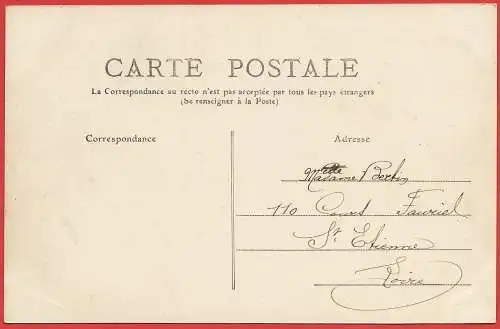 CARTE POSTALE
La Correspondance au recto n'est pas acceptée par tous les pays étrangers
(Se renseigner à la Poste)
Correspondance
Adresse
Madame Bertin
110 Cours Fauriel
St Etienne
Loire